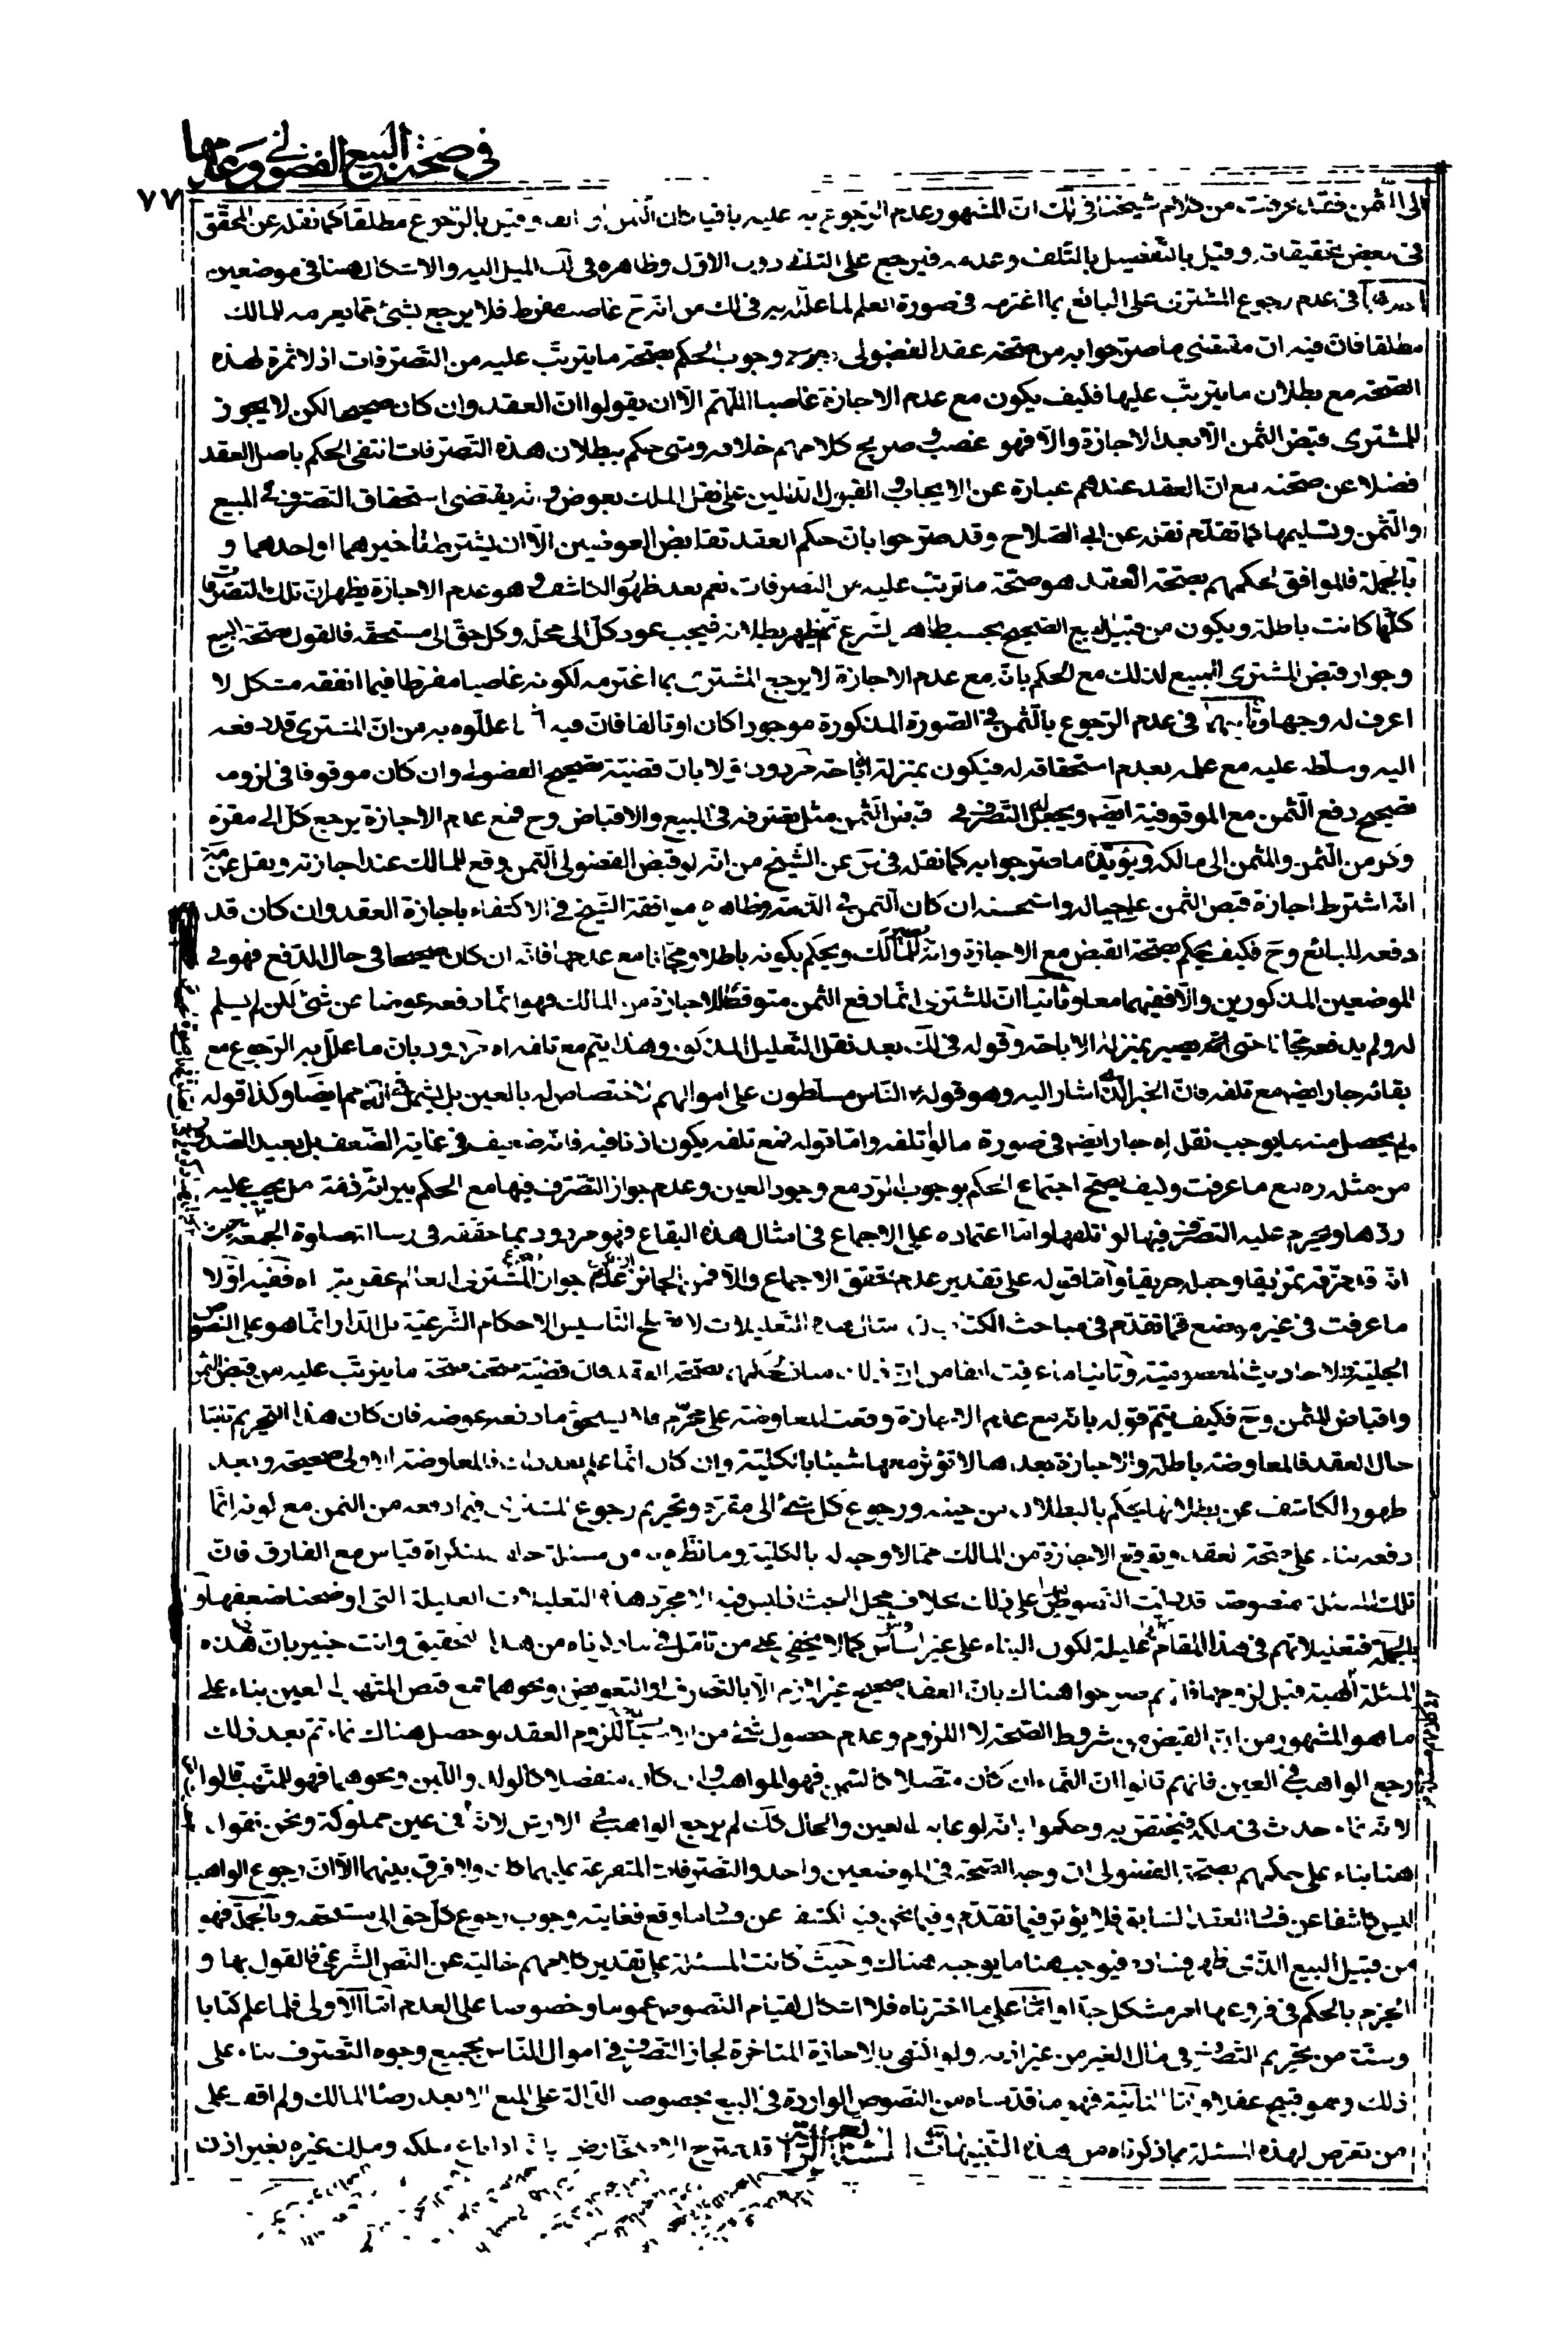 في صحة البيع الفضولي وعدمها
٧٧
الى الثمن فقد عرفت من كلام شيخنا في لك ان المشهور عدم الرجوع به عليه باقيا كان الثمن او تالفا وقيل بالرجوع مطلقا كما نقله عن المحقق
في بعض تحقيقاته وقيل بالتفصيل بالتلف وعدمه فيرجع على الثاني دون الاول وظاهره في لك الميل اليه والاشكال هنا في موضعين
في عدم رجوع المشتري على البائع بما اغترمه في صورة العلم لما علله به في لك من انه ح غاصب مفرط فلا يرجع بشئ مما يغرمه للمالك
مطلقا فان فيه ان مقتضى ما صرحوا به من صحة عقد الفضولي وجوب الحكم بصحة ما يترتب عليه من التصرفات اذ لا ثمرة لهذه
الصحة مع بطلان ما يترتب عليها فكيف يكون مع عدم الاجازة غاصبا اللهم الا ان يقولوا ان العقد وان كان صحيحا لكن لا يجوز
للمشتري قبض الثمن الا بعد الاجازة والا فهو غصب وصريح كلامهم خلافه ومتى حكم ببطلان هذه التصرفات انتفى الحكم باصل العقد
فضلا عن صحته مع ان العقد عندهم عبارة عن الايجاب والقبول الدالين على نقل الملك بعوض وانه يقتضي استحقاق التصرف في المبيع
والثمن وتسليمها كما تقدم نقله عن ابي الصلاح وقد صرحوا بان حكم العقد تقابض العوضين الا ان يشترط تأخيرهما او احدهما و
بالجملة فالموافق لحكمهم بصحة العقد هو صحة ما ترتب عليه من التصرفات نعم بعد ظهور الكاشف وهو عدم الاجازة يظهر ان تلك التصرفات
كلها كانت باطلة ويكون من قبيل البيع الصحيح بحسب ظاهر الشرع ثم يظهر بطلانه فيجب عود كل الى محله وكل حق الى مستحقه فالقول بصحة البيع
وجواز قبض المشتري المبيع لذلك مع الحكم بانه مع عدم الاجازة لا يرجع المشتري بما اغترمه لكونه غاصبا مفرطا فيما انفقه مشكل لا
اعرف له وجها وثانيهما في عدم الرجوع بالثمن في الصورة المذكورة موجودا كان او تالفا فان فيه ان ما عللوه به من ان المشتري قد دفعه
اليه وسلطه عليه مع علمه بعدم استحقاقه له فيكون بمنزلة اباحته مردود اولا بان قضية تصحيح الفضولي وان كان موقوفا في لزومه
تصحيح دفع الثمن مع الموقوفية ايضا ويجعل التصرف في قبض الثمن مثل تصرفه في المبيع والاقباض وح فمع عدم الاجازة يرجع كل الى مقره
وكل من الثمن والمثمن الى مالكه ويؤيده ما صرحوا به كما نقله في س عن الشيخ من انه لو قبض الفضولي الثمن وقع للمالك عند اجازته ونقل عن
انه اشترط اجازة قبض الثمن على حياله واستحسنه ان كان الثمن في الذمة وظاهره موافقة الشيخ في الاكتفاء باجازة العقد وان كان قد
دفعه للبائع وح فكيف يحكم بصحة القبض مع الاجازة وانه للمالك ويحكم بكونه باطلا ومجانا مع عدمها فانه ان كان صحيحا في حال الدفع فهو في
الموضعين المذكورين والا ففيهما معا وثانيا ان المشتري انما دفع الثمن متوقعا للاجازة من المالك فهو انما دفعه عوضا عن شئ لكن لم يسلم
له ولم يدفعه مجانا حتى انه يصير بمنزلة الاباحة وقوله في لك بعد نقل التعليل المذكور وهذا يتم مع تلفه اه مردود بان ما علل به الرجوع مع
بقائه جار ايضا مع تلفه فان الخبر الذي اشار اليه وهو قوله الناس مسلطون على اموالهم لا اختصاص له بالعين بل يشمل ما في ذممهم ايضا وكذا قوله
لم يحصل منه ما يوجب نقله اه جار ايضا في صورة ما لو تلفه واما قوله فمع تلفه يكون اذنا فيه فانه ضعيف في غاية الضعف بل بعيد الصدور
من مثله ره مع ما عرفت وكيف يصح اجتماع الحكم بوجوب الرد مع وجود العين وعدم جواز التصرف فيها مع الحكم ببراءة ذمة من يجب عليه
ردها ويحرم عليه التصرف فيها لو اتلفها واما اعتماده على الاجماع في امثال هذه البقاع فهو مردود بما حققه في رسالته صلوة الجمعة من
انه قد مزقه تمزيقا وجعله حريقا واما قوله على تقدير عدم تحقق الاجماع والا فمن الجائز عدم جواز رجوع المشتري العالم عقوبة له اه ففيه اولا
ما عرفت في غير موضع مما تقدم في مباحث الكتاب ان امثال هذه التعليلات لا تصلح لتأسيس الاحكام الشرعية بل المدار انما هو على النصوص
الجلية والاحاديث المعصومية وثانيا ما عرفت انفا من ان ذلك مناف لحكمهم بصحة العقد فان قضية صحته صحة ما يترتب عليه من قبض الثمن
واقباض المثمن وح فكيف يتم قوله بانه مع عدم الاجازة وقعت المعاوضة على محرم فلا يستحق ما دفعه عوضه فان كان هذا التحريم ثابتا
حال العقد فالمعاوضة باطلة والاجازة بعدها لا تؤثر معها شيئا بالكلية وان كان انما علم بعد ذلك فالمعاوضة الاولى صحيحة وبعد
ظهور الكاشف عن بطلانها يحكم بالبطلان من حينه ورجوع كل شئ الى مقره وتحريم رجوع المشتري فيما دفعه من الثمن مع كونه انما
دفعه بناء على صحة العقد وتوقع الاجازة من المالك مما لا وجه له بالكلية وما نظر به من مسئلة قياس مع الفارق فان
تلك المسئلة منصوصة قد دلت النصوص على ذلك بخلاف محل البحث اذ ليس فيه الا مجرد هذه التعليلات العليلة التي اوضحنا ضعفها و
بالجملة فتعليلاتهم في هذا المقام عليلة لكون البناء على غير اساس كما لا يخفى على من تأمل في ما ذكرناه من هذا التحقيق وانت خبير بان هذه
المسئلة الهبة قبل لزومها فانهم صرحوا هناك بان العقد صحيح غير لازم الا بالتصرف او التعويض ونحوهما فمع قبض المتهب العين بناء على
ما هو المشهور من ان القبض من شروط الصحة لا اللزوم وعدم حصول شئ من الاسباب للزوم العقد لو حصل هناك نماء ثم بعد ذلك
رجع الواهب في العين فانهم قالوا ان النماء ان كان متصلا كالسمن فهو للواهب وان كان منفصلا كالولد واللبن ونحوهما فهو للمتهب قالوا
لانه نماء حدث في ملكه فيختص به وحكموا بانه لو عابت العين والحال كذلك لم يرجع الواهب في الارش لانه في عين مملوكة ونحن نقول
هنا بناء على حكمهم بصحة الفضولي ان وجه الصحة في الموضعين واحد والتصرفات المتفرعة عليهما كذلك ولا فرق بينهما الا ان رجوع الواهب
ليس كاشفا عن فساد العقد السابق فلا يؤثر فيما تقدم وفيما نحن فيه الكشف عن فساد ما وقع فغايته وجوب رجوع كل حق الى مستحقه وبالجملة فهو
من قبيل البيع الذي ظهر فساده فيوجب هنا ما يوجبه هناك وحيث كانت المسئلة على تقدير كلامهم خالية عن النص الشرعي فالقول بها و
الجزم بالحكم في فروعها امر مشكل جدا واما على ما اخترناه فلا اشكال لقيام النصوص عموما وخصوصا على العدم اما الاولى فلما علم كتابا
وسنة من تحريم التصرف في مال الغير من غير اذنه ولو اكتفى بالاجازة المتاخرة لجاز التصرف في اموال الناس بجميع وجوه التصرف بناء على
ذلك وهو قبيح عقلا واما الثانية فهو ما قدمناه من النصوص الواردة في البيع بخصوصه الدالة على المنع الا بعد رضا المالك ولم اقف على
من تعرض لهذه المسئلة بما ذكرناه من هذه التنبيهات المسئلة قد صرح الاصحاب رض بانه اذا باع ملكه وملك غيره بغير اذن